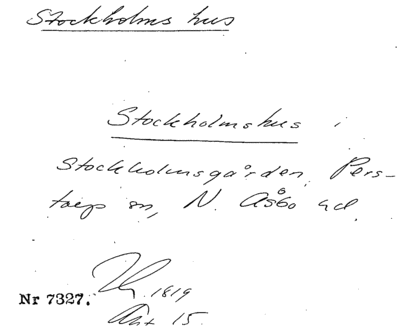 Stockholms hus
Stockholmshus i
Stockholmsgården, Pers-
torp sn, N. Åsbo hd.
1819
Nr 7327.
Akt 15.